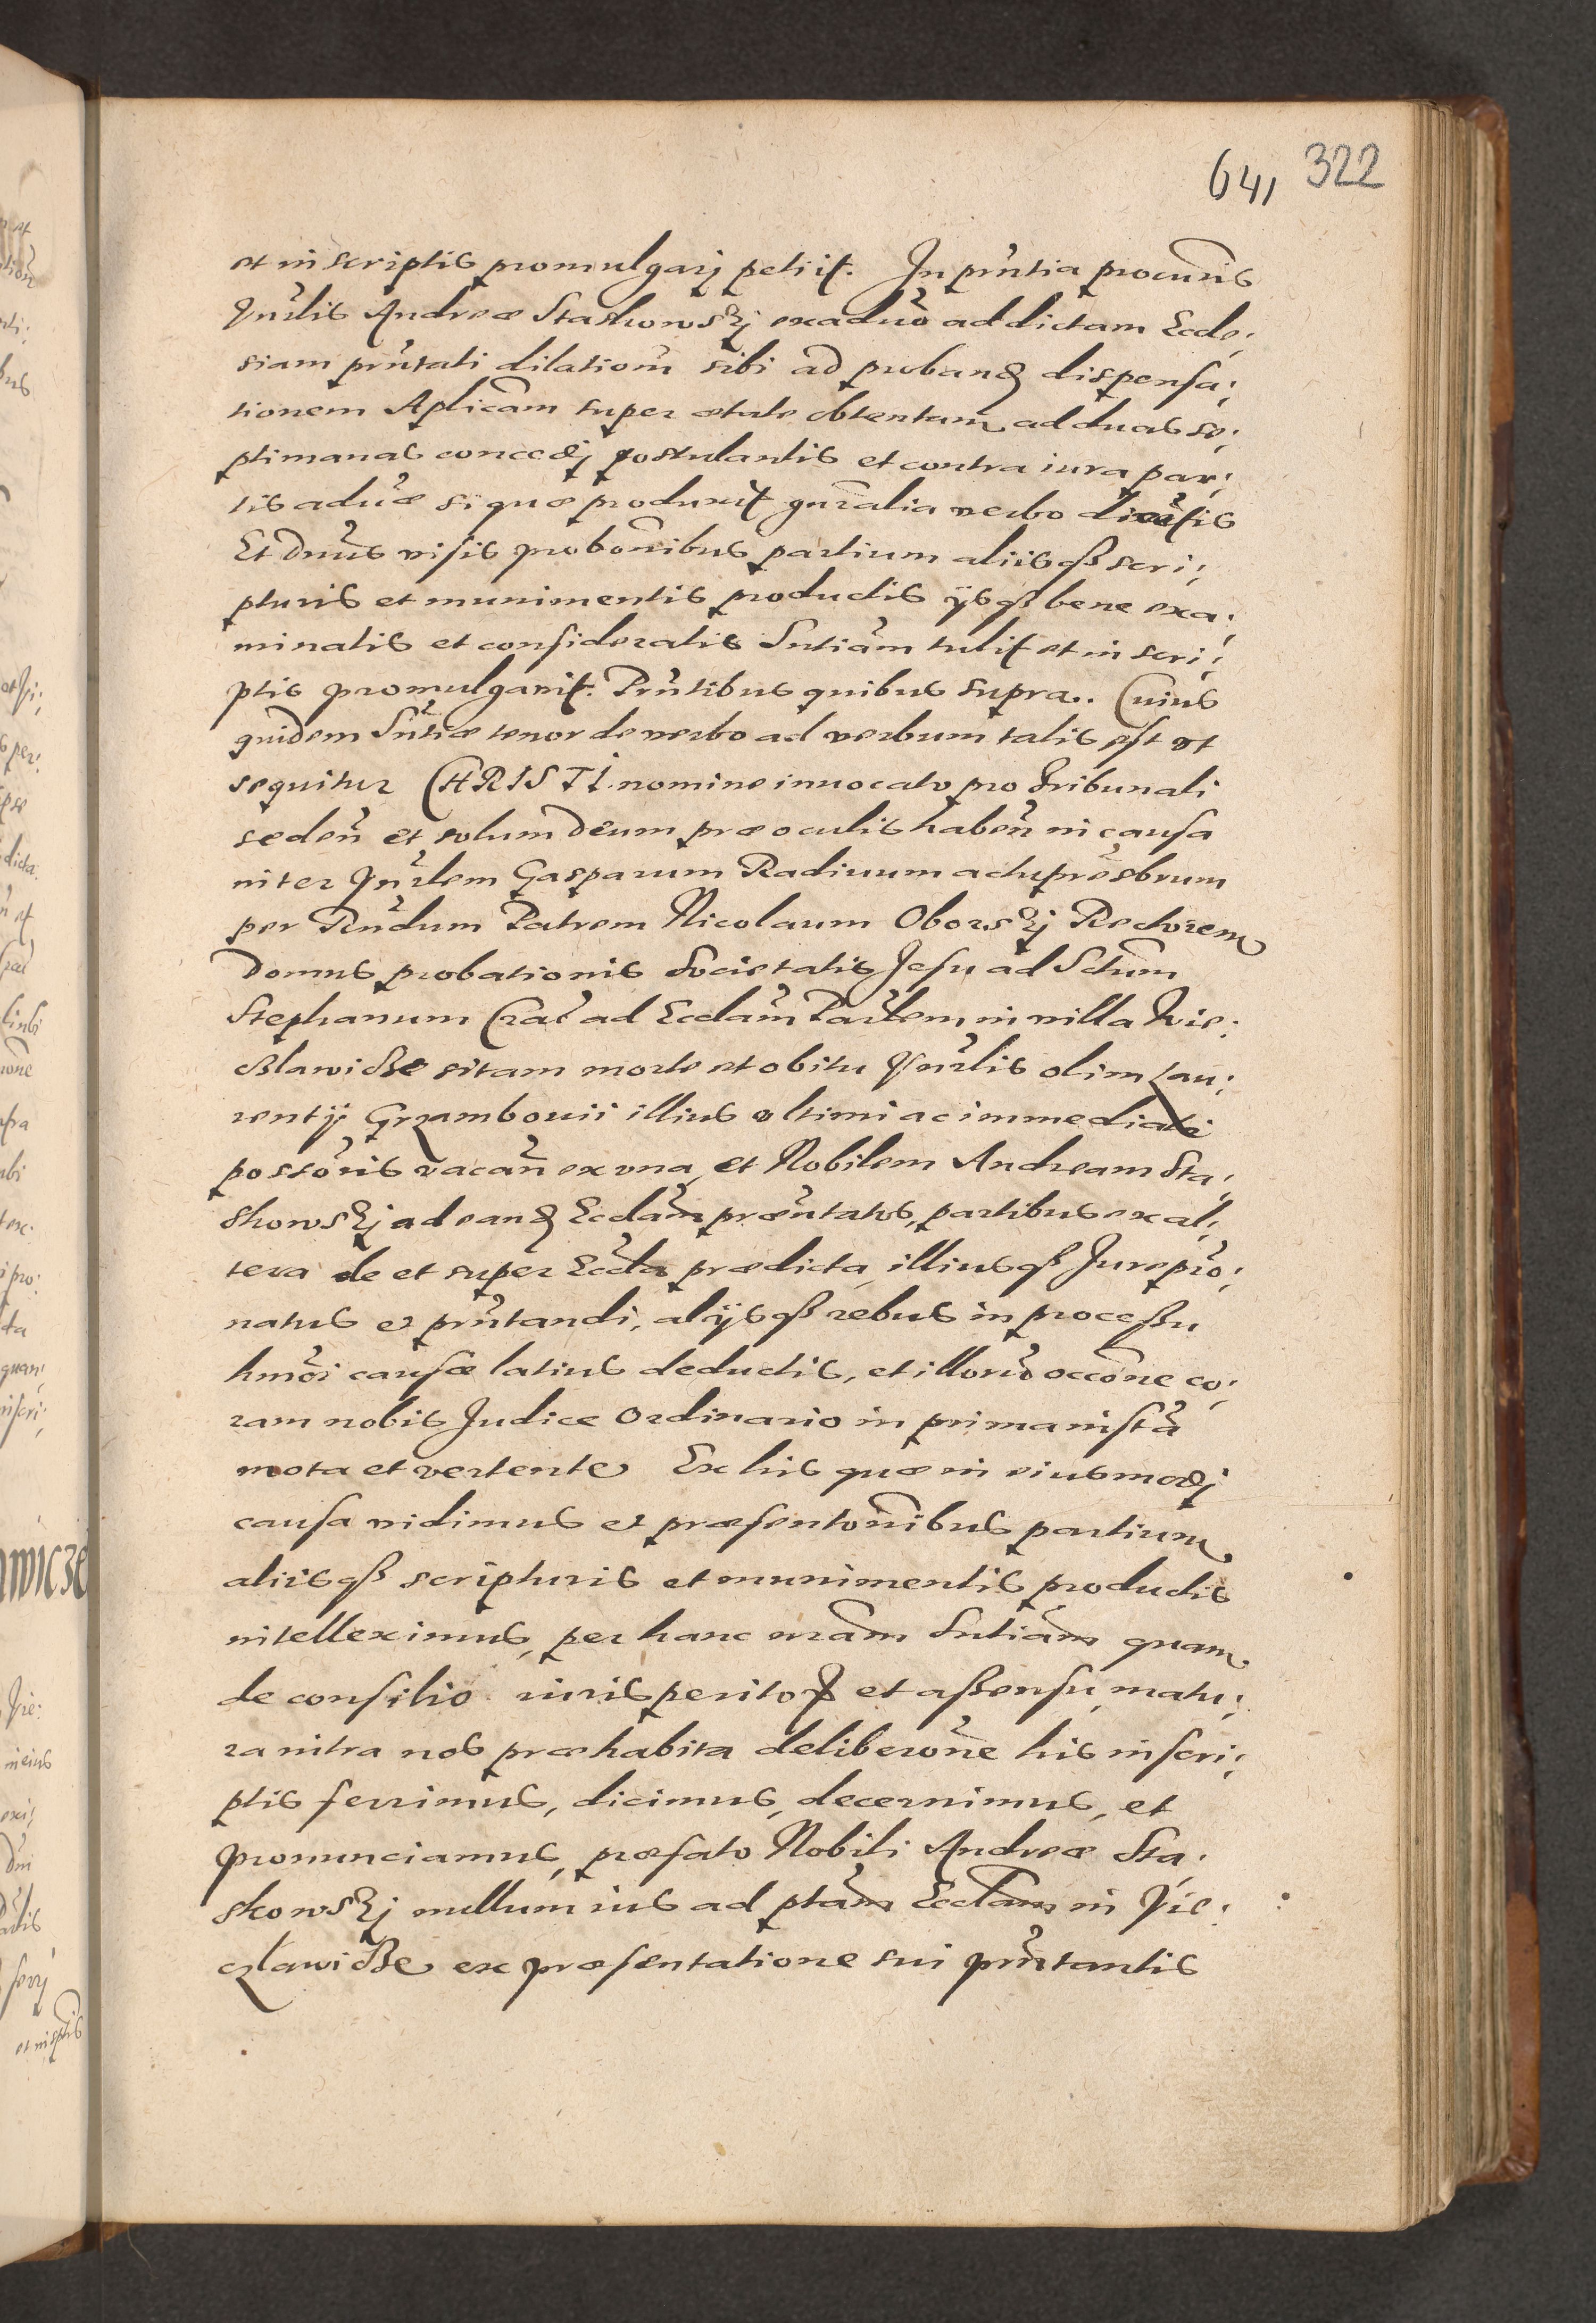 641 322
et in scriptis promulgarj petijt. In pn̄tia procur̄is
Vn̄rlis Andreæ Staskowskj ex adūo ad dictam Eccle:
siam prn̄tati dilation̄ sibi ad proband dispensa:
tionem Aplicam super ætate obtentam ad duas se:
ptimanas concedj postulantis et contra iura par:
tis adūæ si quæ produxit gn̄ralia verbo
Et Dn̄us visis probōnibus partium aliisqß scri:
pturis et munimentis productis ijsqß bene exa:
minatis et consideratis Sn̄tiam tulit et in scri:
ptis promulgavit. Prn̄tibus quibus supra. Cuius
quidem Sn̄tiæ tenor de verbo ad verbum talis est ut
sequitur CHRISTI nomine invocato pro tribunali
seden̄ et solum Deum præ oculis haben̄ in causa
inter Vn̄rlem Gasparum Radivum actu presb̄rum
per Rn̄dum Patrem Nicolaum Oborskj Rectorem
Domus probationis Societatis Jesu ad Sctum
Stephanum Crac̄ ad Ecclām Par̄lem in villa Wie:
czlawicze sitam morte et obitu Vn̄rlis olim Lau:
rentij Grzambovii illius ultimi ac immediati
possōris vacan̄ ex una, et Nobilem Andream Sta:
skowskj ad eand Ecclām præn̄tatus, partibus ex al:
tera de et super Eccla prædicta, illiusqß Jurepr̄o:
natus et prn̄tandi, alijsqß rebus in proceßu
hmōi causæ latius deductis, et illorū occōne co:
ram nobis Judice Ordinario in prima instā
mota et vertente Ex his quæ in eiusmodj
causa vidimus et præsentōnibus partium
aliisqß scripturis et munimentis productis
intelleximus, per hanc nr̄am Sn̄tiam quam
de consilio iuris peritor et aßensu, matu:
ra intra nos præhabita deliberōne his in scri:
ptis ferrimus, dicimus, decernimus, et
pronunciamus, præfato Nobili Andreæ Sta:
skowskj nullum ius ad ptam Ecclam in Vie:
czlawicze ex præsentatione sui prn̄tantis